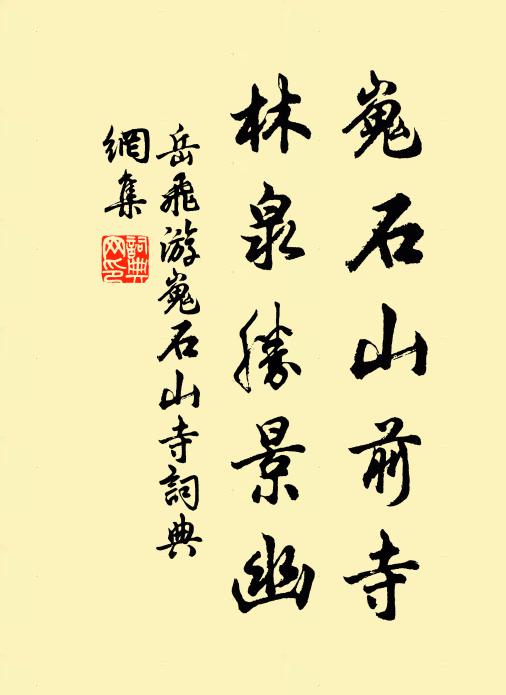 嵬石山前寺
林泉勝景幽
岳飛游嵬石山寺詞典
網集
詞典
网印